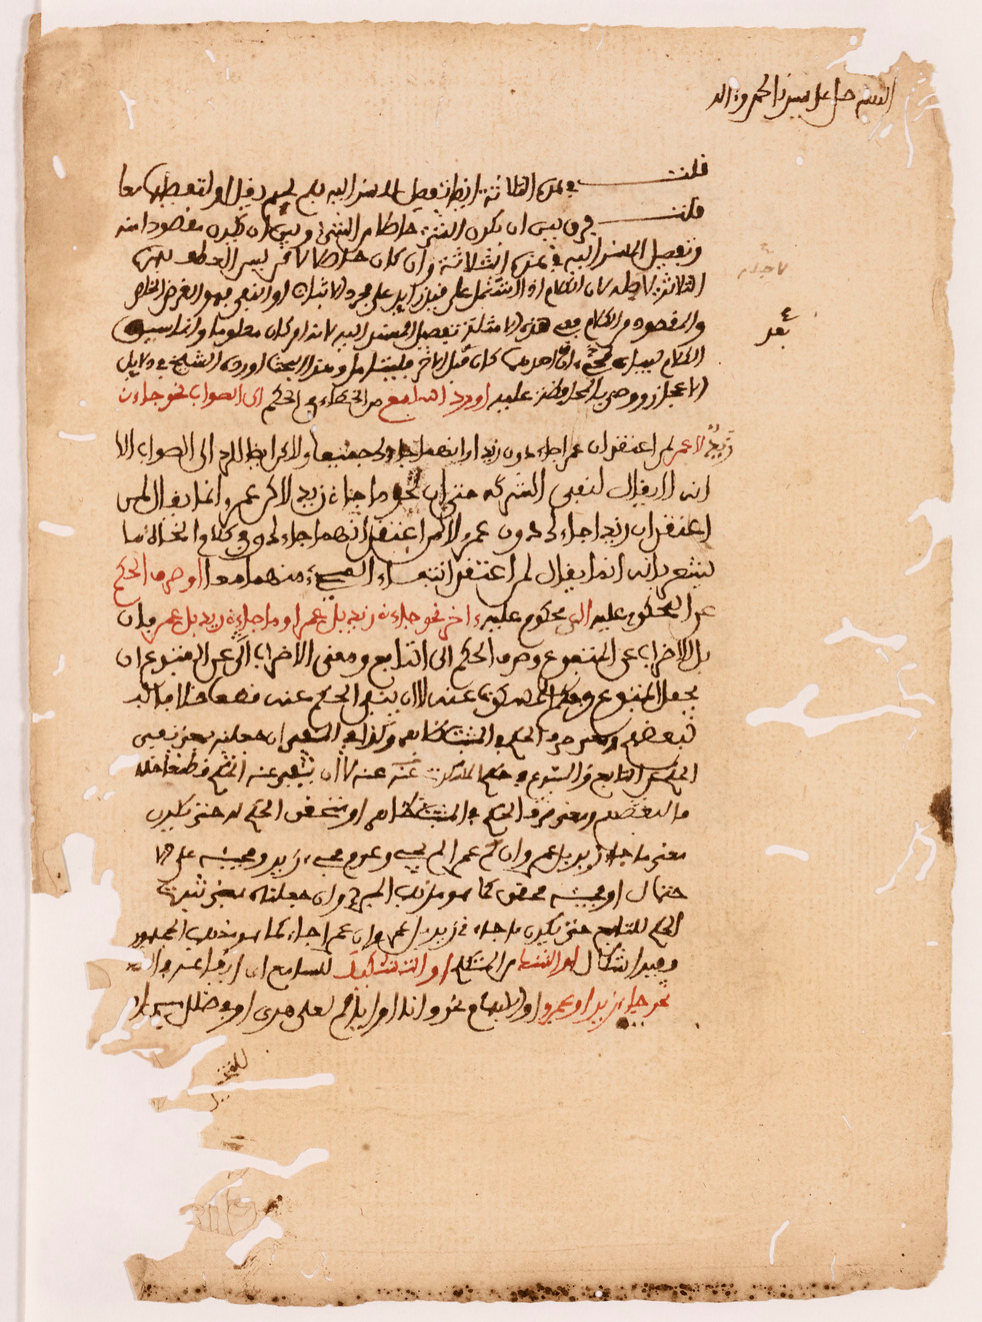 اللهم صل على سيدنا محمد وءاله
قلت في هذه الثلاثة ايضا تفصيل للمسند اليه فلم لم يقل او لتفصيلهما معا
قلت فرق بين ان يكون الشيء حاصلا من الشيء وبين ان يكون مقصودا منه
وتفصيل المسند اليه في هذه الثلاثة وان كان حاصلا لاكن ليس العطف بهذه
الثلاثة لاجله لان الكلام اذا اشتمل على قيد زايد على مجرد الاثبات او النفي فهو الغرض الخاص
والمقصود من الكلام ففي هذه الامثلة تفصيل المسند اليه كانه امر كان معلوما وانما سيق
الكلام لبيان ان مجيء احدهما كان بعد الاخر فليتامل وهذا البحث اورده الشيخ في دلايل
الاعجاز ووصى بالمحافظة عليه او رد السامع من الخطاء في الحكم الى الصواب نحو جاءني
زيد لا عمر لمن اعتقد ان عمرا جاءك دون زيد او انهما جاءك جميعا ولاكن ايضا للرد الى الصواب الا
انه لا يقال لنفي الشركة حتى ان نحو ما جاءني زيد لاكن عمرو انما يقال لمن
اعتقد ان زيدا جاءك دون عمرو لا لمن اعتقد انهما جاءك وفي كلام النحاة ما
يشعر بانه انما يقال لمن اعتقد انتفاء المجيء منهما معا او صرف الحكم
عن المحكوم عليه الى محكوم عليه ءاخر نحو جاءني زيد بل عمرو او ما جاءني زيد بل عمرو فان
بل للاضراب عن المتبوع وصرف الحكم الى التابع ومعنى الاضراب عن المتبوع ان
يجعل المتبوع في حكم المسكوت عنه لا ان ينفى الحكم عنه قطعا خلافا
لبعضهم ومعنى صرف الحكم في المثبت ظاهر وكذا في المنفي ان جعلناه بمعنى نفي
الحكم عن التابع والمتبوع في حكم المسكوت عنه لا ان ينفى عنه الحكم قطعا خلا
فا لبعضهم ومعنى صرف الحكم في المثبت ظاهر او متحقق الحكم له حتى يكون
معنى ما جاءني زيد بل عمرو ان عمرا لم يجيء وعدم مجيء زيد ومجيئه على الا
حتمال او مجيئه محقق كما هو مذهب المبرد وان جعلناه بمعنى ثبوت
الحكم للتابع حتى يكون ما جاءني زيد بل عمرو ان عمرا جاء كما هو مذهب الجمهور
ففيه اشكال او للشك من المتكلم او التشكيك للسامع اى ايقاعه في الشك
نحو جاءني زيد او عمرو او للابهام نحو وانا او اياكم لعلى هدى او في ضلال مبين او
للتخيير